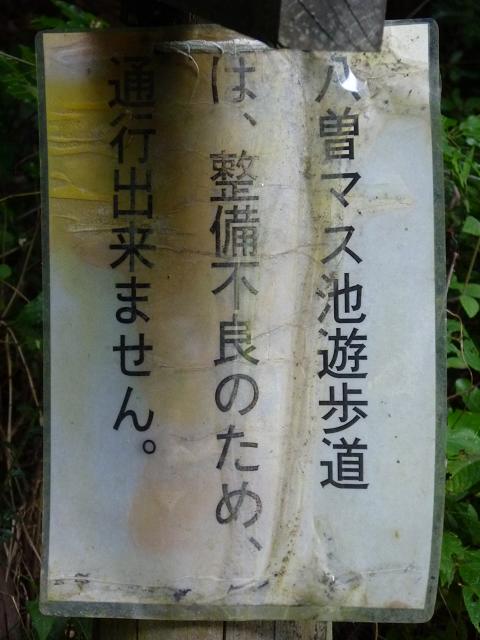 八曽マス池遊歩道
は、整備不良のため、
通行出来ません。